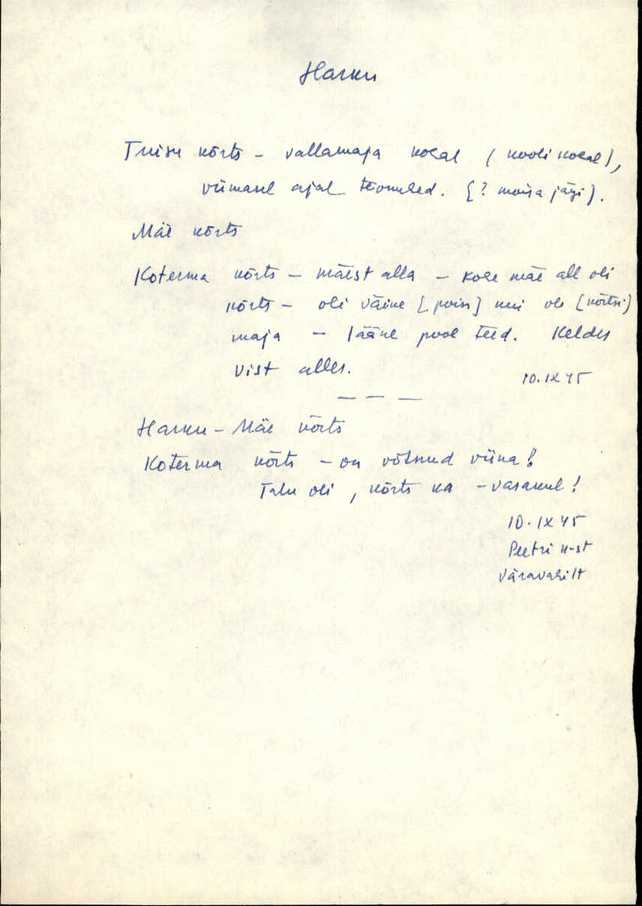 Harku
Tuisu kõrts – vallamaja kohal (kooli kohal),
viimasel ajal töömehed. (? mõisa järgi).
Mäe kõrts
Koterma kõrts – mäest alla – kohe mäe all oli
kõrts – oli väike [poiss] kui ole [kõrtsi]
maja – lääne pool teed. Kelder
vist alles.
10.IX 45
— — —
Harku – Mäe kõrts
Koterma kõrts – on võtnud viina!
Talu oli, kõrts ka – vasakul!
10.IX 45
Peetri k-st
Väravahilt